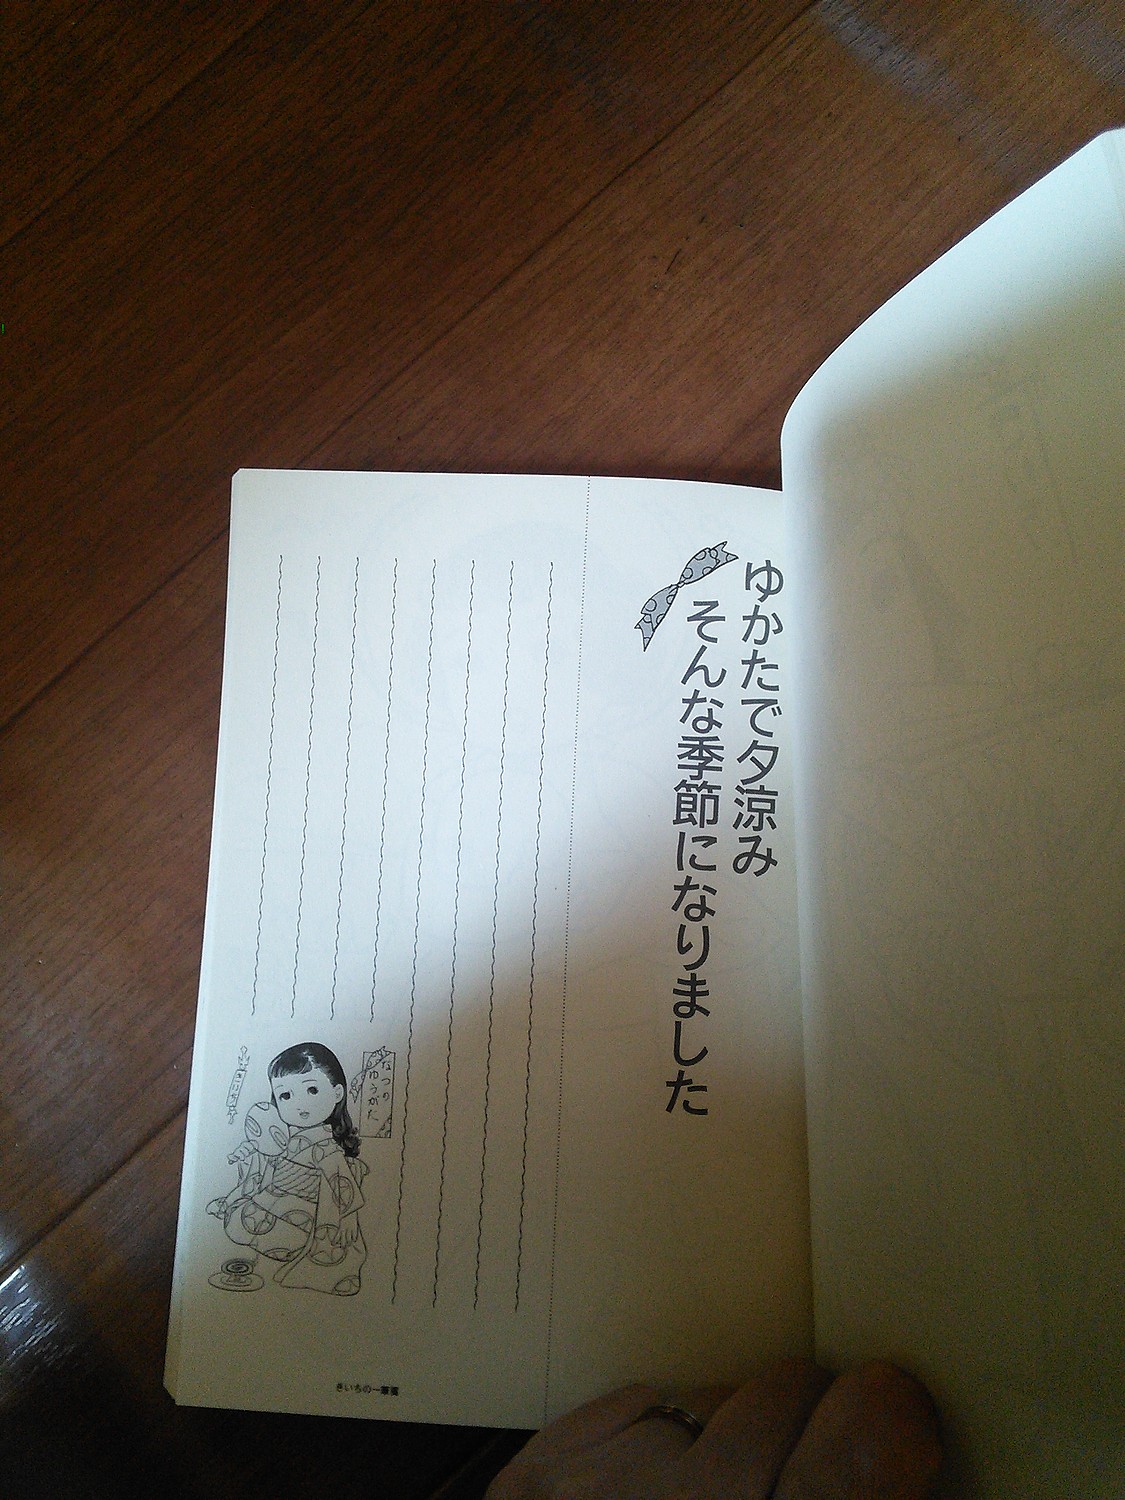 ゆかたで夕涼み
そんな季節になりました
なつの
ゆうがた
きいちの一筆箋